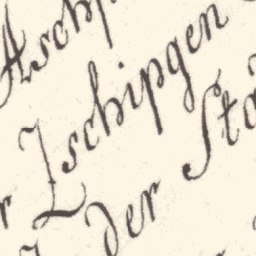 Asch
r Zschipgen
der Sta